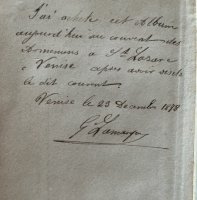 J'ai acheté cet Album
aujourd'hui au couvent des
Armeniens à St Lazare
à Venise apres avoir visité
le dit couvent.
Venise le 23 Decembre 1878